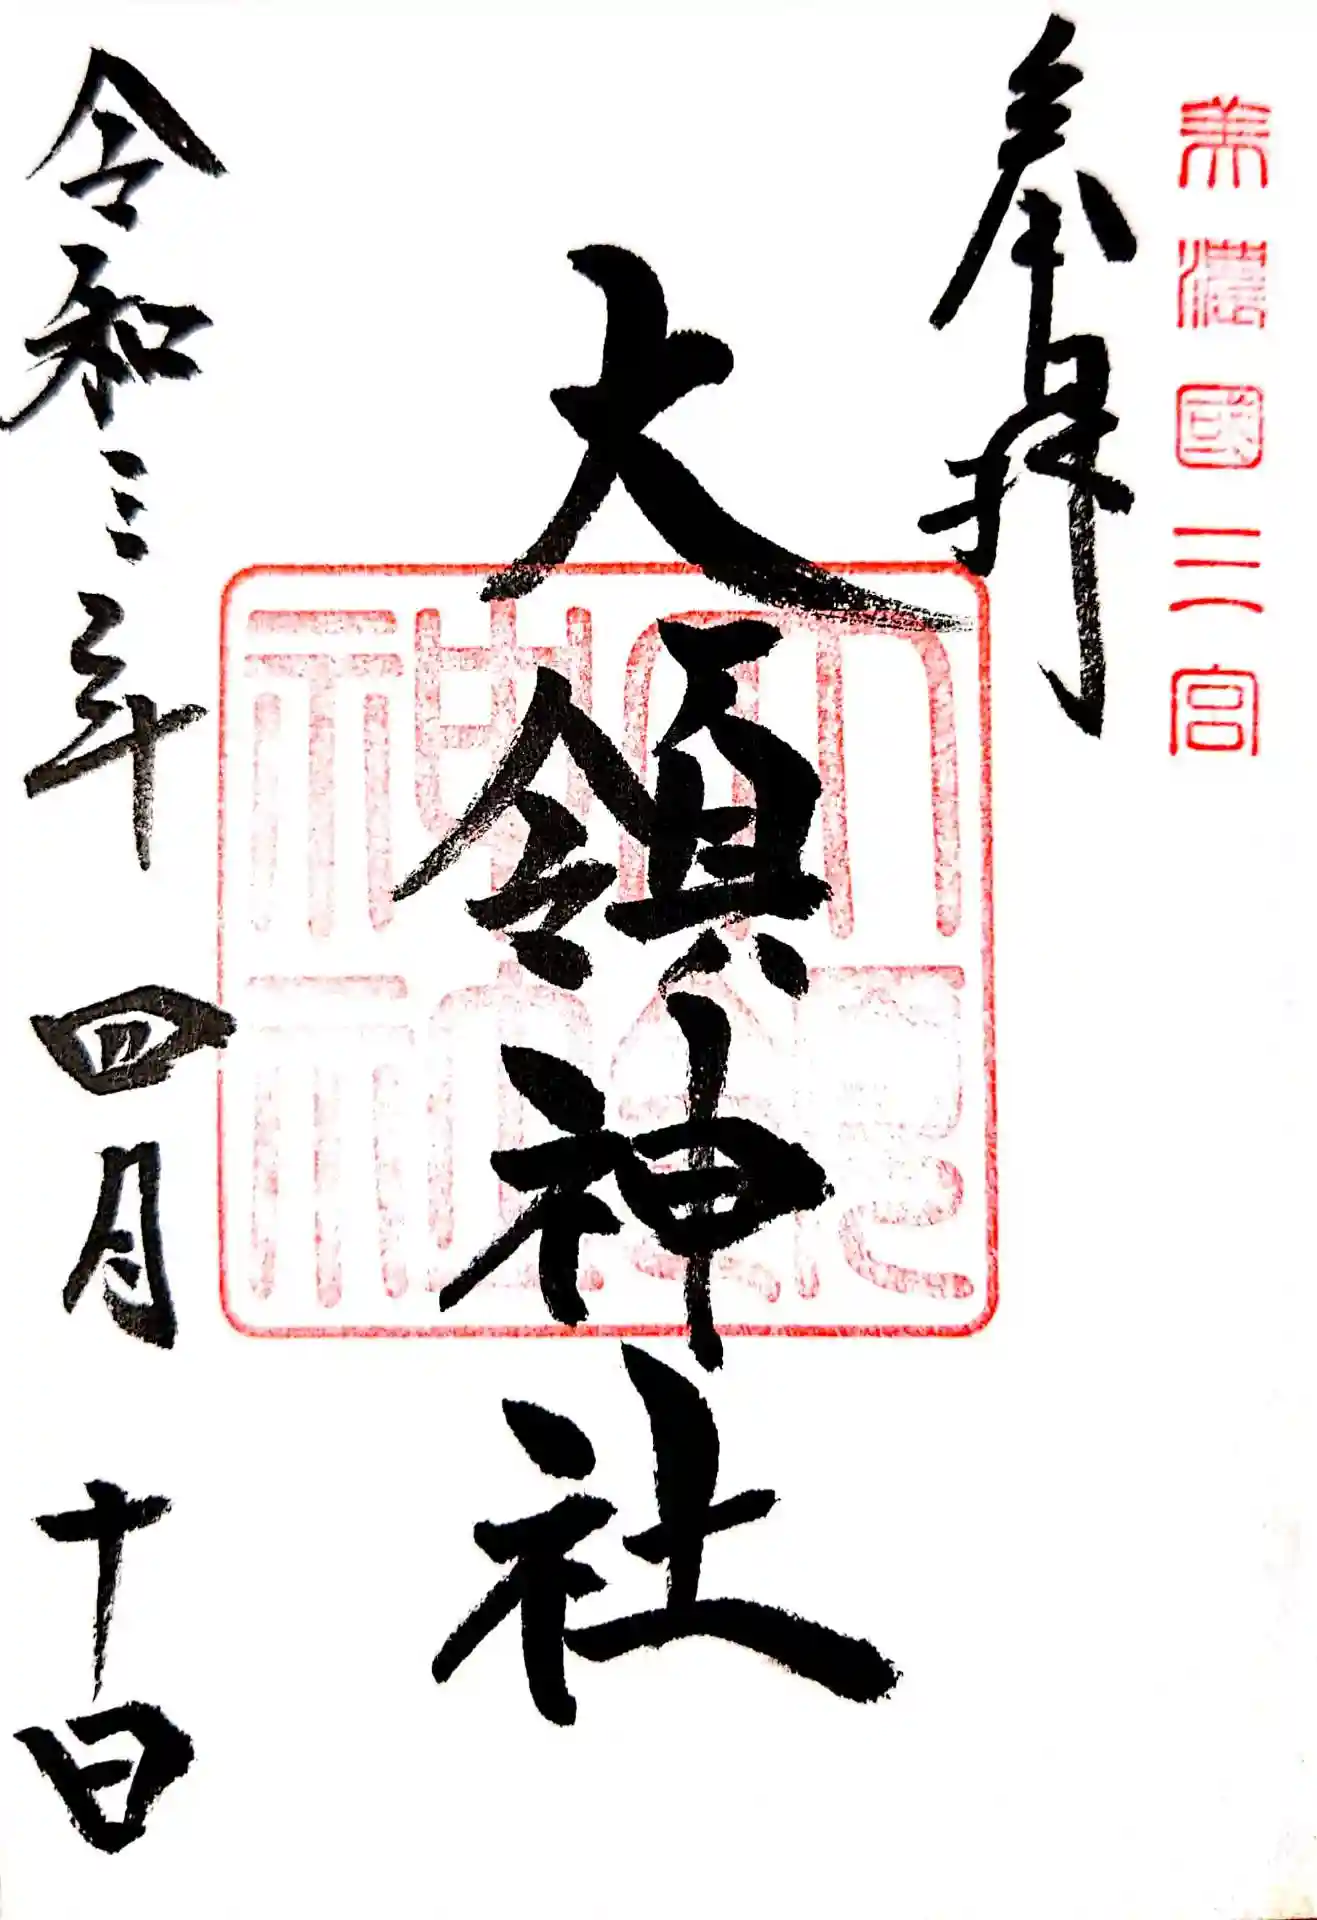 美濃國三宮
奉拝
大領神社
大領神社
令和三年 四月 十日